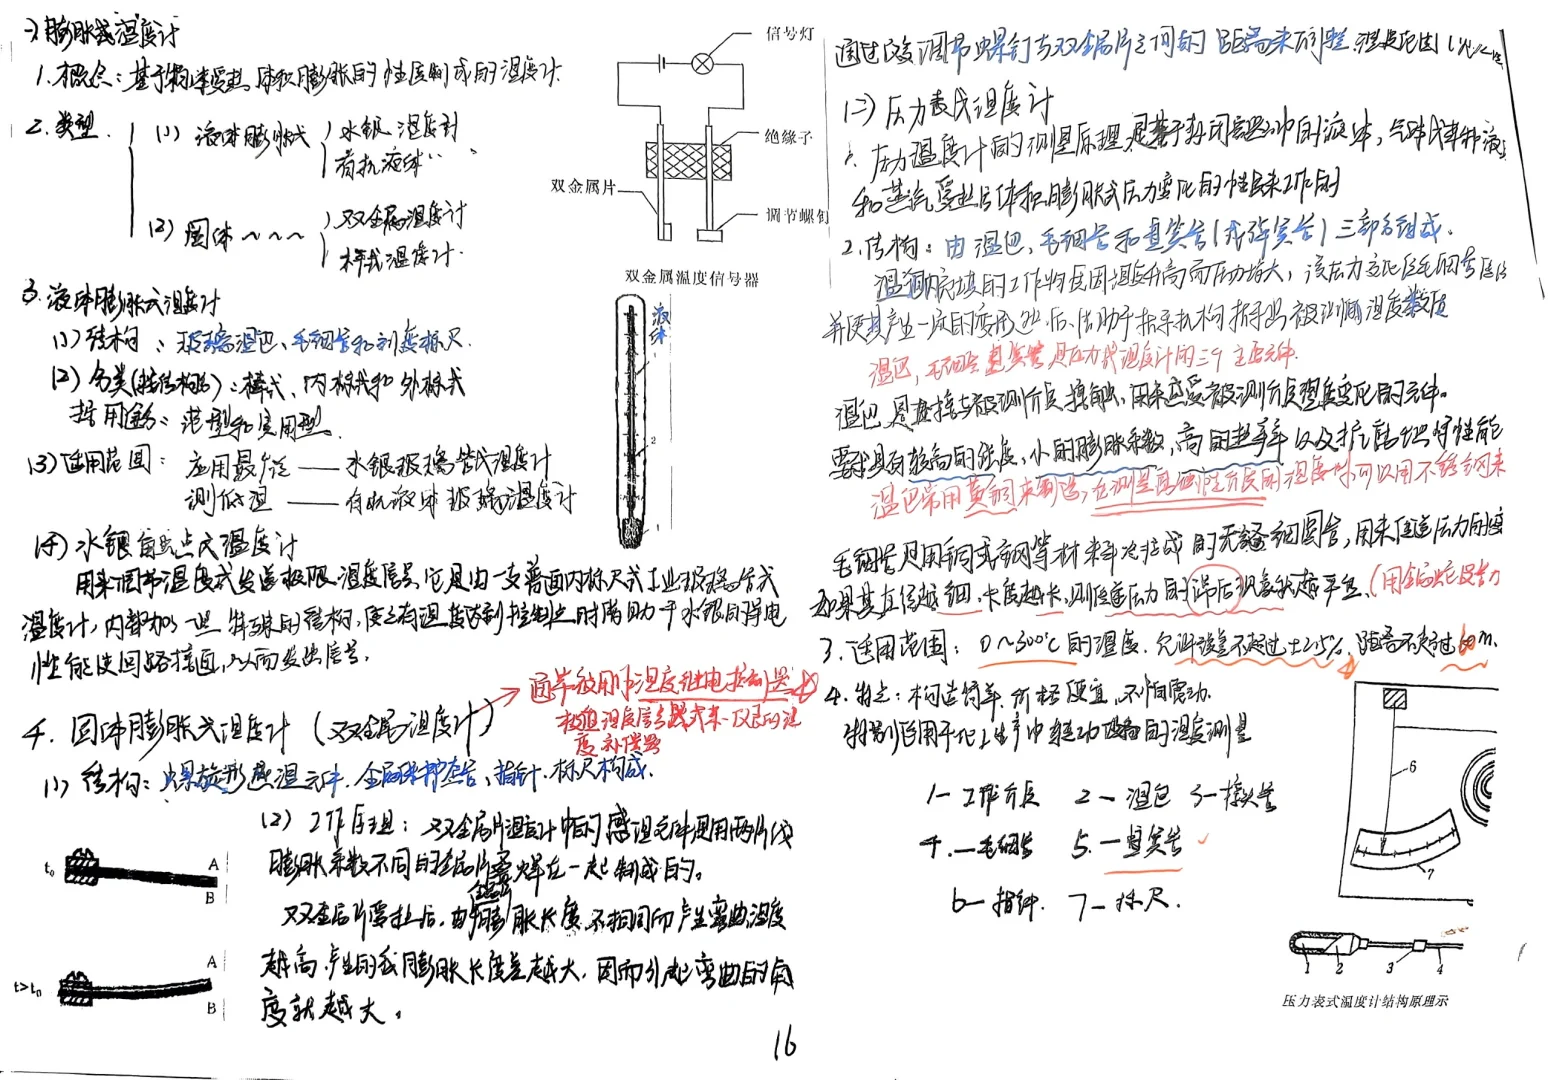 膨胀式温度计
1.概念:基于物体受热体积膨胀的性质制成的温度计.
2.类型.
(1) 液体膨胀式 水银温度计
有机液体〃
(2) 固体~~~ 双金属温度计
杆式温度计.
3.液体膨胀式温度计
(1) 结构:玻璃温包、毛细管和刻度标尺.
(2) 分类(按结构):棒式、内标式和外标式
按用途:范型和实用型.
(3) 适用范围:应用最广泛——水银玻璃管式温度计
测低温——有机液体玻璃温度计
(4) 水银电接点式温度计
用来调节温度或发出极限温度信号,它是由一支普通内标尺式工业玻璃管式
温度计,内部加一些特殊的结构,使之有温度达到控制点时借助于水银的导电
性能使回路接通,从而发出信号.
4.固体膨胀式温度计(双金属温度计)
通常被用作温度继电控制器
极值温度信号器或某一仪表的温
度补偿器
(1) 结构:螺旋形感温元件、金属保护套管、指针、标尺构成.
(2) 工作原理:双金属片温度计中的感温元件是用两片线
膨胀系数不同的金属片叠焊在一起制成的。
双金属片受热后,由于金属片膨胀长度不相同而产生弯曲,温度
越高产生的线膨胀长度差越大,因而引起弯曲的角
度就越大。
t₀
A
B
t>t₀
A
B
信号灯
绝缘子
双金属片
调节螺钉
双金属温度信号器
液体
1
2
16
通过改变调节螺钉与双金属片之间的距离来调整
(二) 压力表式温度计
1.压力温度计的测量原理是基于封闭容器中的液体,气体或某种液
和蒸汽受热后体积膨胀或压力变化的性质来工作的
2.结构:由温包、毛细管和盘簧管(或弹簧管)三部分组成.
温包内充填的工作物质因温度升高而压力增大,该压力变化经毛细管传给
并使其产生一定的变形,然后,借助于指示机构指示出被测温度数值
温包,毛细管盘簧管是压力式温度计的三个主要元件.
温包是直接与被测介质接触,用来感受被测介质温度变化的元件。
要求具有较高的强度,小的膨胀系数,高的热导率以及抗腐蚀等性能
温包常用黄铜来制造,在测量腐蚀性介质的温度时可以用不锈钢来
毛细管是用铜或钢等材料冷拉成的无缝细圆管,用来传递压力的变
如果其直径越细,长度越长,则传递压力的滞后现象就越严重.(用金属蛇皮管
3.适用范围:0~300℃的温度.允许误差不超过±2.5%.距离不超过60m.
4.特点:构造简单,价格便宜,不怕震动.
特别适用于化工生产中转动设备的温度测量
1—工作介质 2—温包 3—接头管
4.—毛细管 5.—盘簧管
6—指针. 7—标尺.
6
7
1 2 3 4
压力表式温度计结构原理示